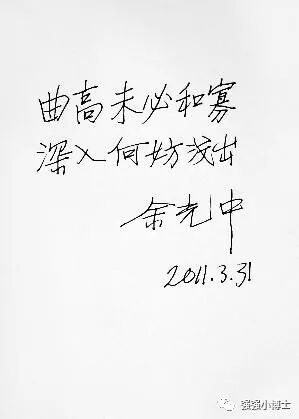 曲高未必和寡
深入何妨浅出
余光中
2011.3.31
强强小博士